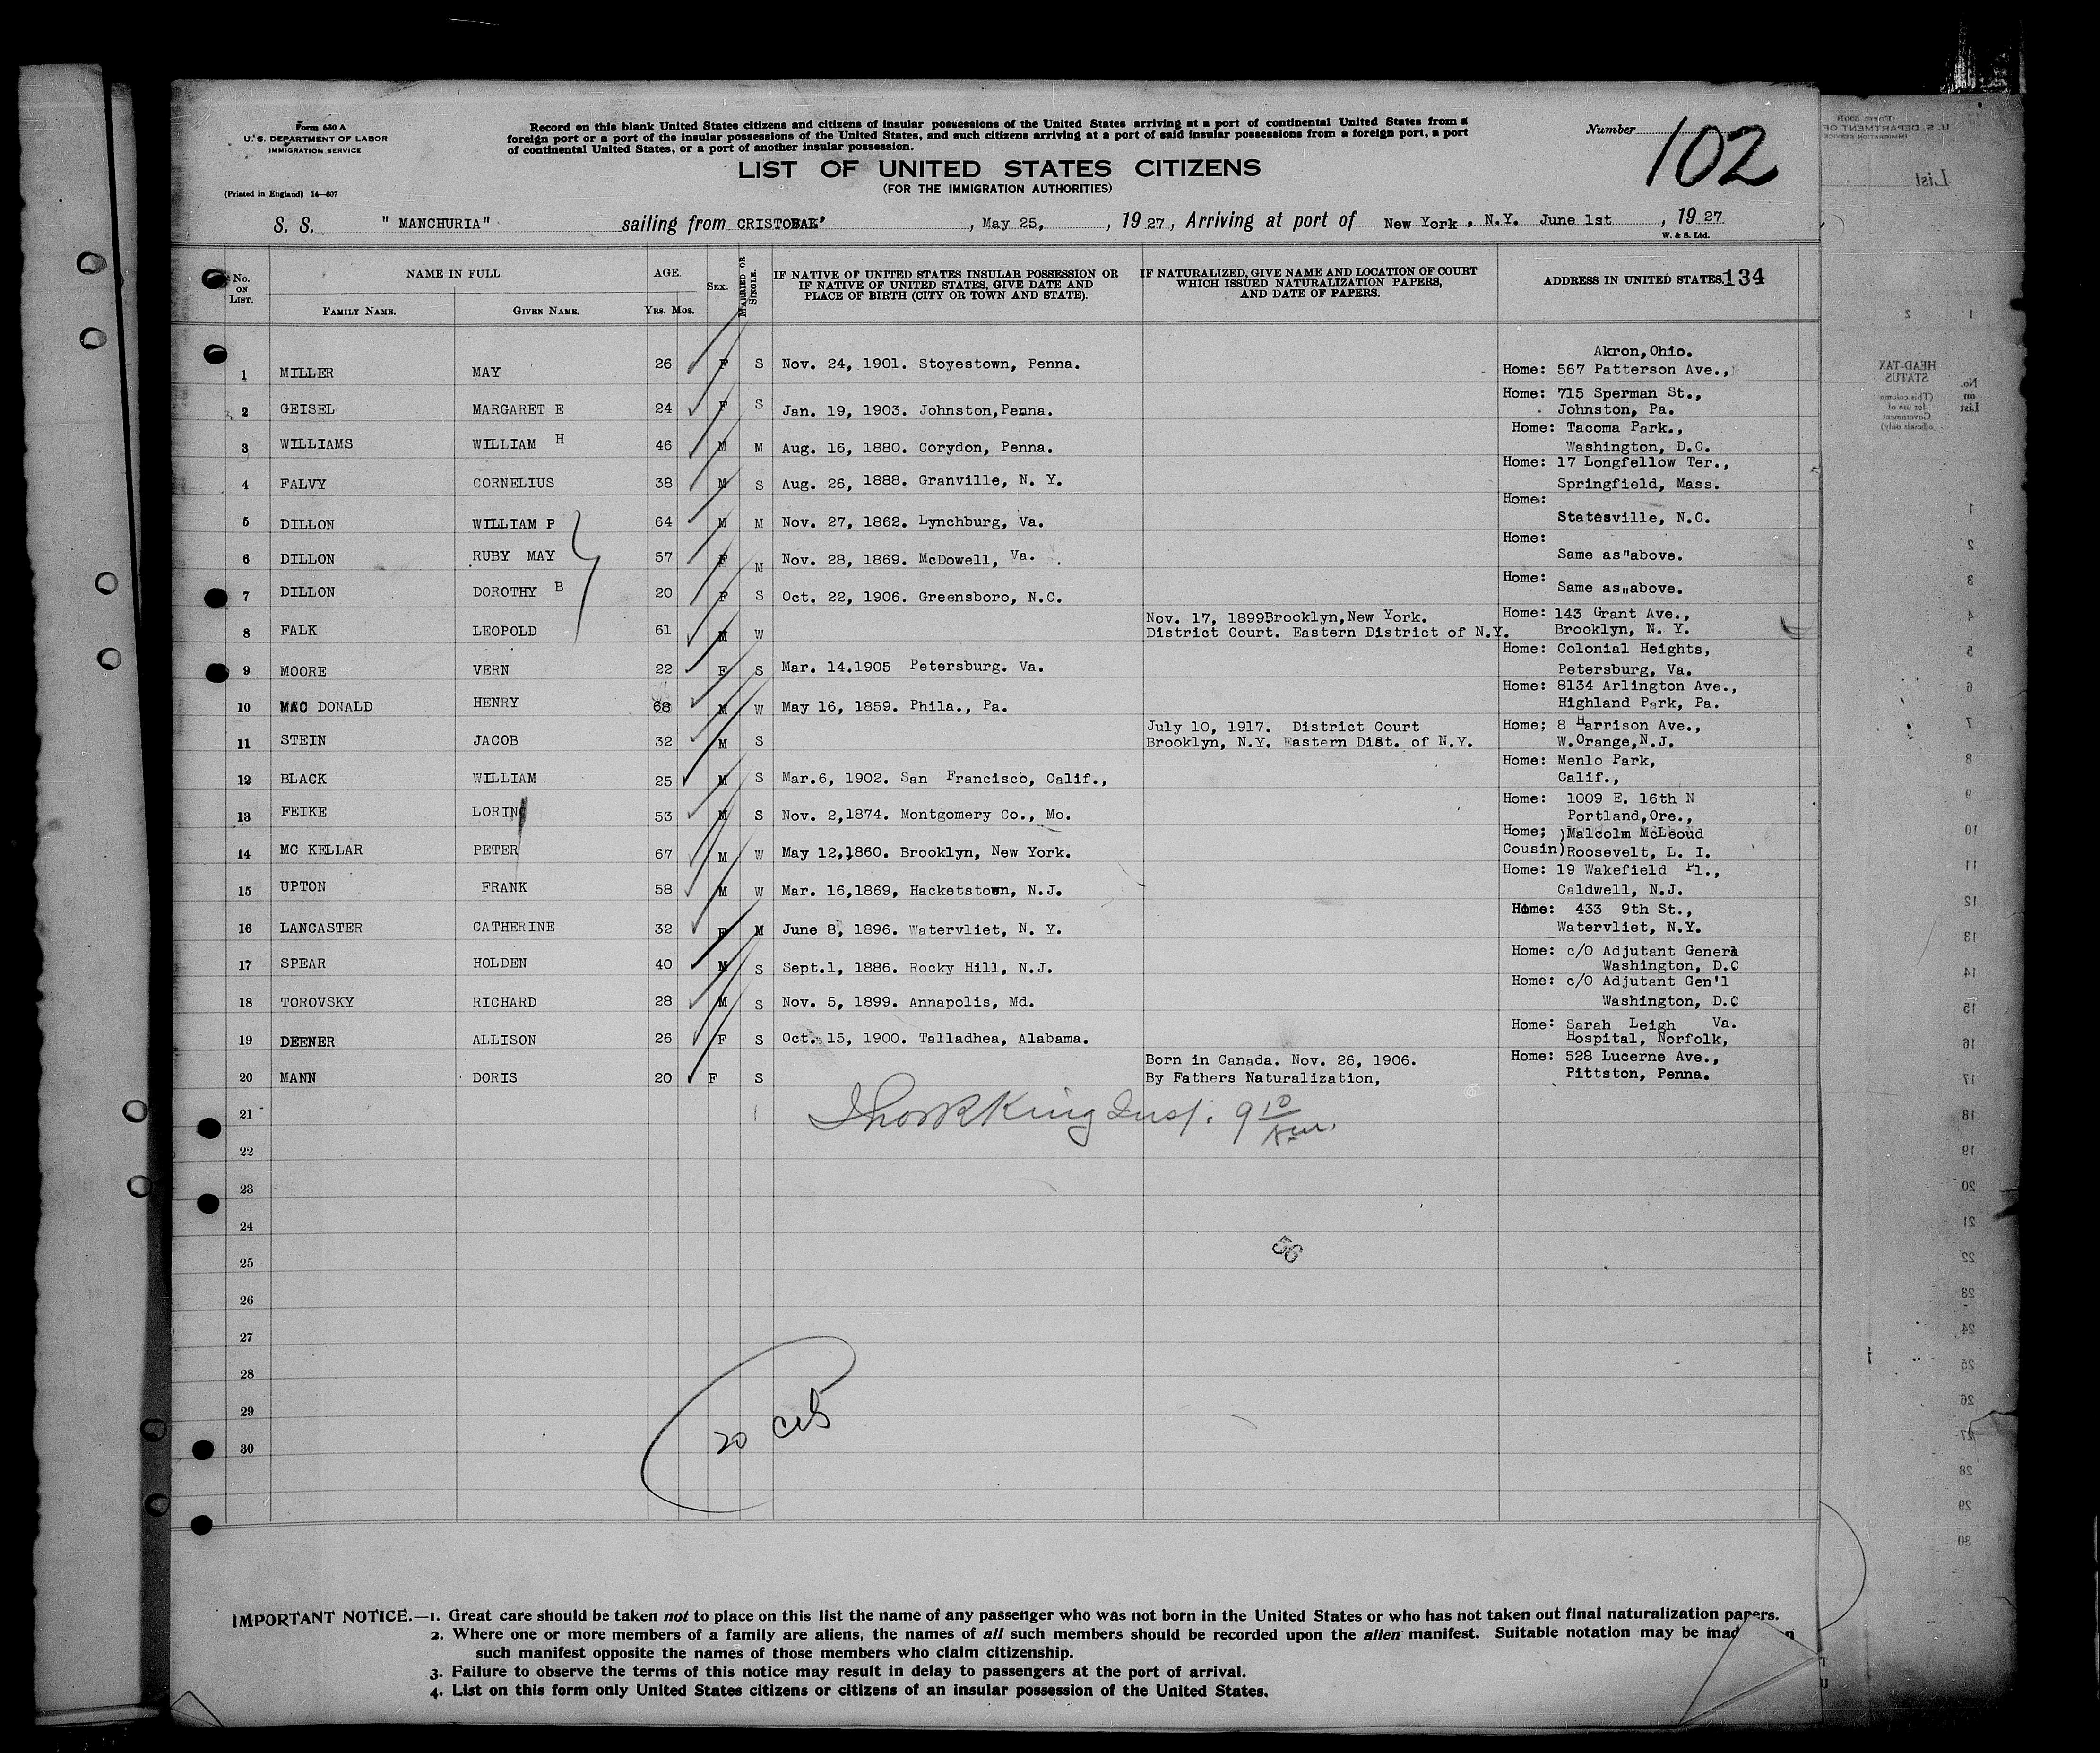 Form 630 A
U. S. DEPARTMENT OF LABOR
IMMIGRATION SERVICE
(Printed in England) 14—607
Record on this blank United States citizens and citizens of insular possessions of the United States arriving at a port of continental United States from a
foreign port or a port of the insular possessions of the United States, and such citizens arriving at a port of said insular possessions from a foreign port, a port
of continental United States, or a port of another insular possession.
Number 102
LIST OF UNITED STATES CITIZENS
(FOR THE IMMIGRATION AUTHORITIES)
S. S. " MANCHURIA" sailing from CRISTOBAL , May 25, , 19 27 , Arriving at port of New York , N.Y. June 1st , 19 27
W. & S. Ltd.
No. on List. NAME IN FULL AGE. Sex. Married or Single. IF NATIVE OF UNITED STATES INSULAR POSSESSION OR IF NATIVE OF UNITED STATES, GIVE DATE AND PLACE OF BIRTH (CITY OR TOWN AND STATE). IF NATURALIZED, GIVE NAME AND LOCATION OF COURT WHICH ISSUED NATURALIZATION PAPERS, AND DATE OF PAPERS. ADDRESS IN UNITED STATES. 134
Family Name. Given Name. Yrs. Mos.
Akron, Ohio.
1 MILLER MAY 26 F S Nov. 24, 1901. Stoyestown, Penna. Home: 567 Patterson Ave.,
2 GEISEL MARGARET E 24 F S Jan. 19, 1903. Johnston, Penna. Home: 715 Sperman St.,
Johnston, Pa.
3 WILLIAMS WILLIAM H 46 M M Aug. 16, 1880. Corydon, Penna. Home: Tacoma Park.,
Washington, D.C.
4 FALVY CORNELIUS 38 M S Aug. 26, 1888. Granville, N. Y. Home: 17 Longfellow Ter.,
Springfield, Mass.
5 DILLON WILLIAM P 64 M M Nov. 27, 1862. Lynchburg, Va. Home:
Statesville, N.C.
6 DILLON RUBY MAY 57 F M Nov. 28, 1869. McDowell, Va. Home:
Same as"above.
7 DILLON DOROTHY B 20 F S Oct. 22, 1906. Greensboro, N.C. Home:
Same as"above.
8 FALK LEOPOLD 61 M W Nov. 17, 1899Brooklyn,New York. Home: 143 Grant Ave.,
District Court. Eastern District of N.Y. Brooklyn, N. Y.
9 MOORE VERN 22 F S Mar. 14.1905 Petersburg. Va. Home: Colonial Heights,
Petersburg, Va.
10 MAC DONALD HENRY 68 M W May 16, 1859. Phila., Pa. Home: 8134 Arlington Ave.,
Highland Park, Pa.
11 STEIN JACOB 32 M S July 10, 1917. District Court Home; 8 Harrison Ave.,
Brooklyn, N.Y. Eastern Dist. of N.Y. W.Orange,N.J.
12 BLACK WILLIAM 25 M S Mar.6, 1902. San Francisco, Calif., Home: Menlo Park,
Calif.,
13 FEIKE LORING 53 M S Nov. 2,1874. Montgomery Co., Mo. Home: 1009 E. 16th N
Portland,Ore.,
14 MC KELLAR PETER 67 M W May 12,1860. Brooklyn, New York. Home; )Malcolm McLeoud
Cousin)Roosevelt, L. I.
15 UPTON FRANK 58 M W Mar. 16,1869, Hacketstown, N.J. Home: 19 Wakefield Pl.,
Caldwell, N.J.
16 LANCASTER CATHERINE 32 F M June 8, 1896. Watervliet, N. Y. Home: 433 9th St.,
Watervliet, N.Y.
17 SPEAR HOLDEN 40 M S Sept.1, 1886. Rocky Hill, N.J. Home: c/O Adjutant Genera
Washington, D.C
18 TOROVSKY RICHARD 28 M S Nov. 5, 1899. Annapolis, Md. Home: c/O Adjutant Gen'l
Washington, D.C
19 DEENER ALLISON 26 F S Oct. 15, 1900. Talladhea, Alabama. Home: Sarah Leigh Va.
Hospital, Norfolk,
20 MANN DORIS 20 F S Born in Canada. Nov. 26, 1906. Home: 528 Lucerne Ave.,
By Fathers Naturalization, Pittston, Penna.
21 King Insp. 9 10
22
23
24
56
25
26
27
28
29
20
30
IMPORTANT NOTICE.—1. Great care should be taken not to place on this list the name of any passenger who was not born in the United States or who has not taken out final naturalization papers.
2. Where one or more members of a family are aliens, the names of all such members should be recorded upon the alien manifest. Suitable notation may be
such manifest opposite the names of those members who claim citizenship.
3. Failure to observe the terms of this notice may result in delay to passengers at the port of arrival.
4. List on this form only United States citizens or citizens of an insular possession of the United States.